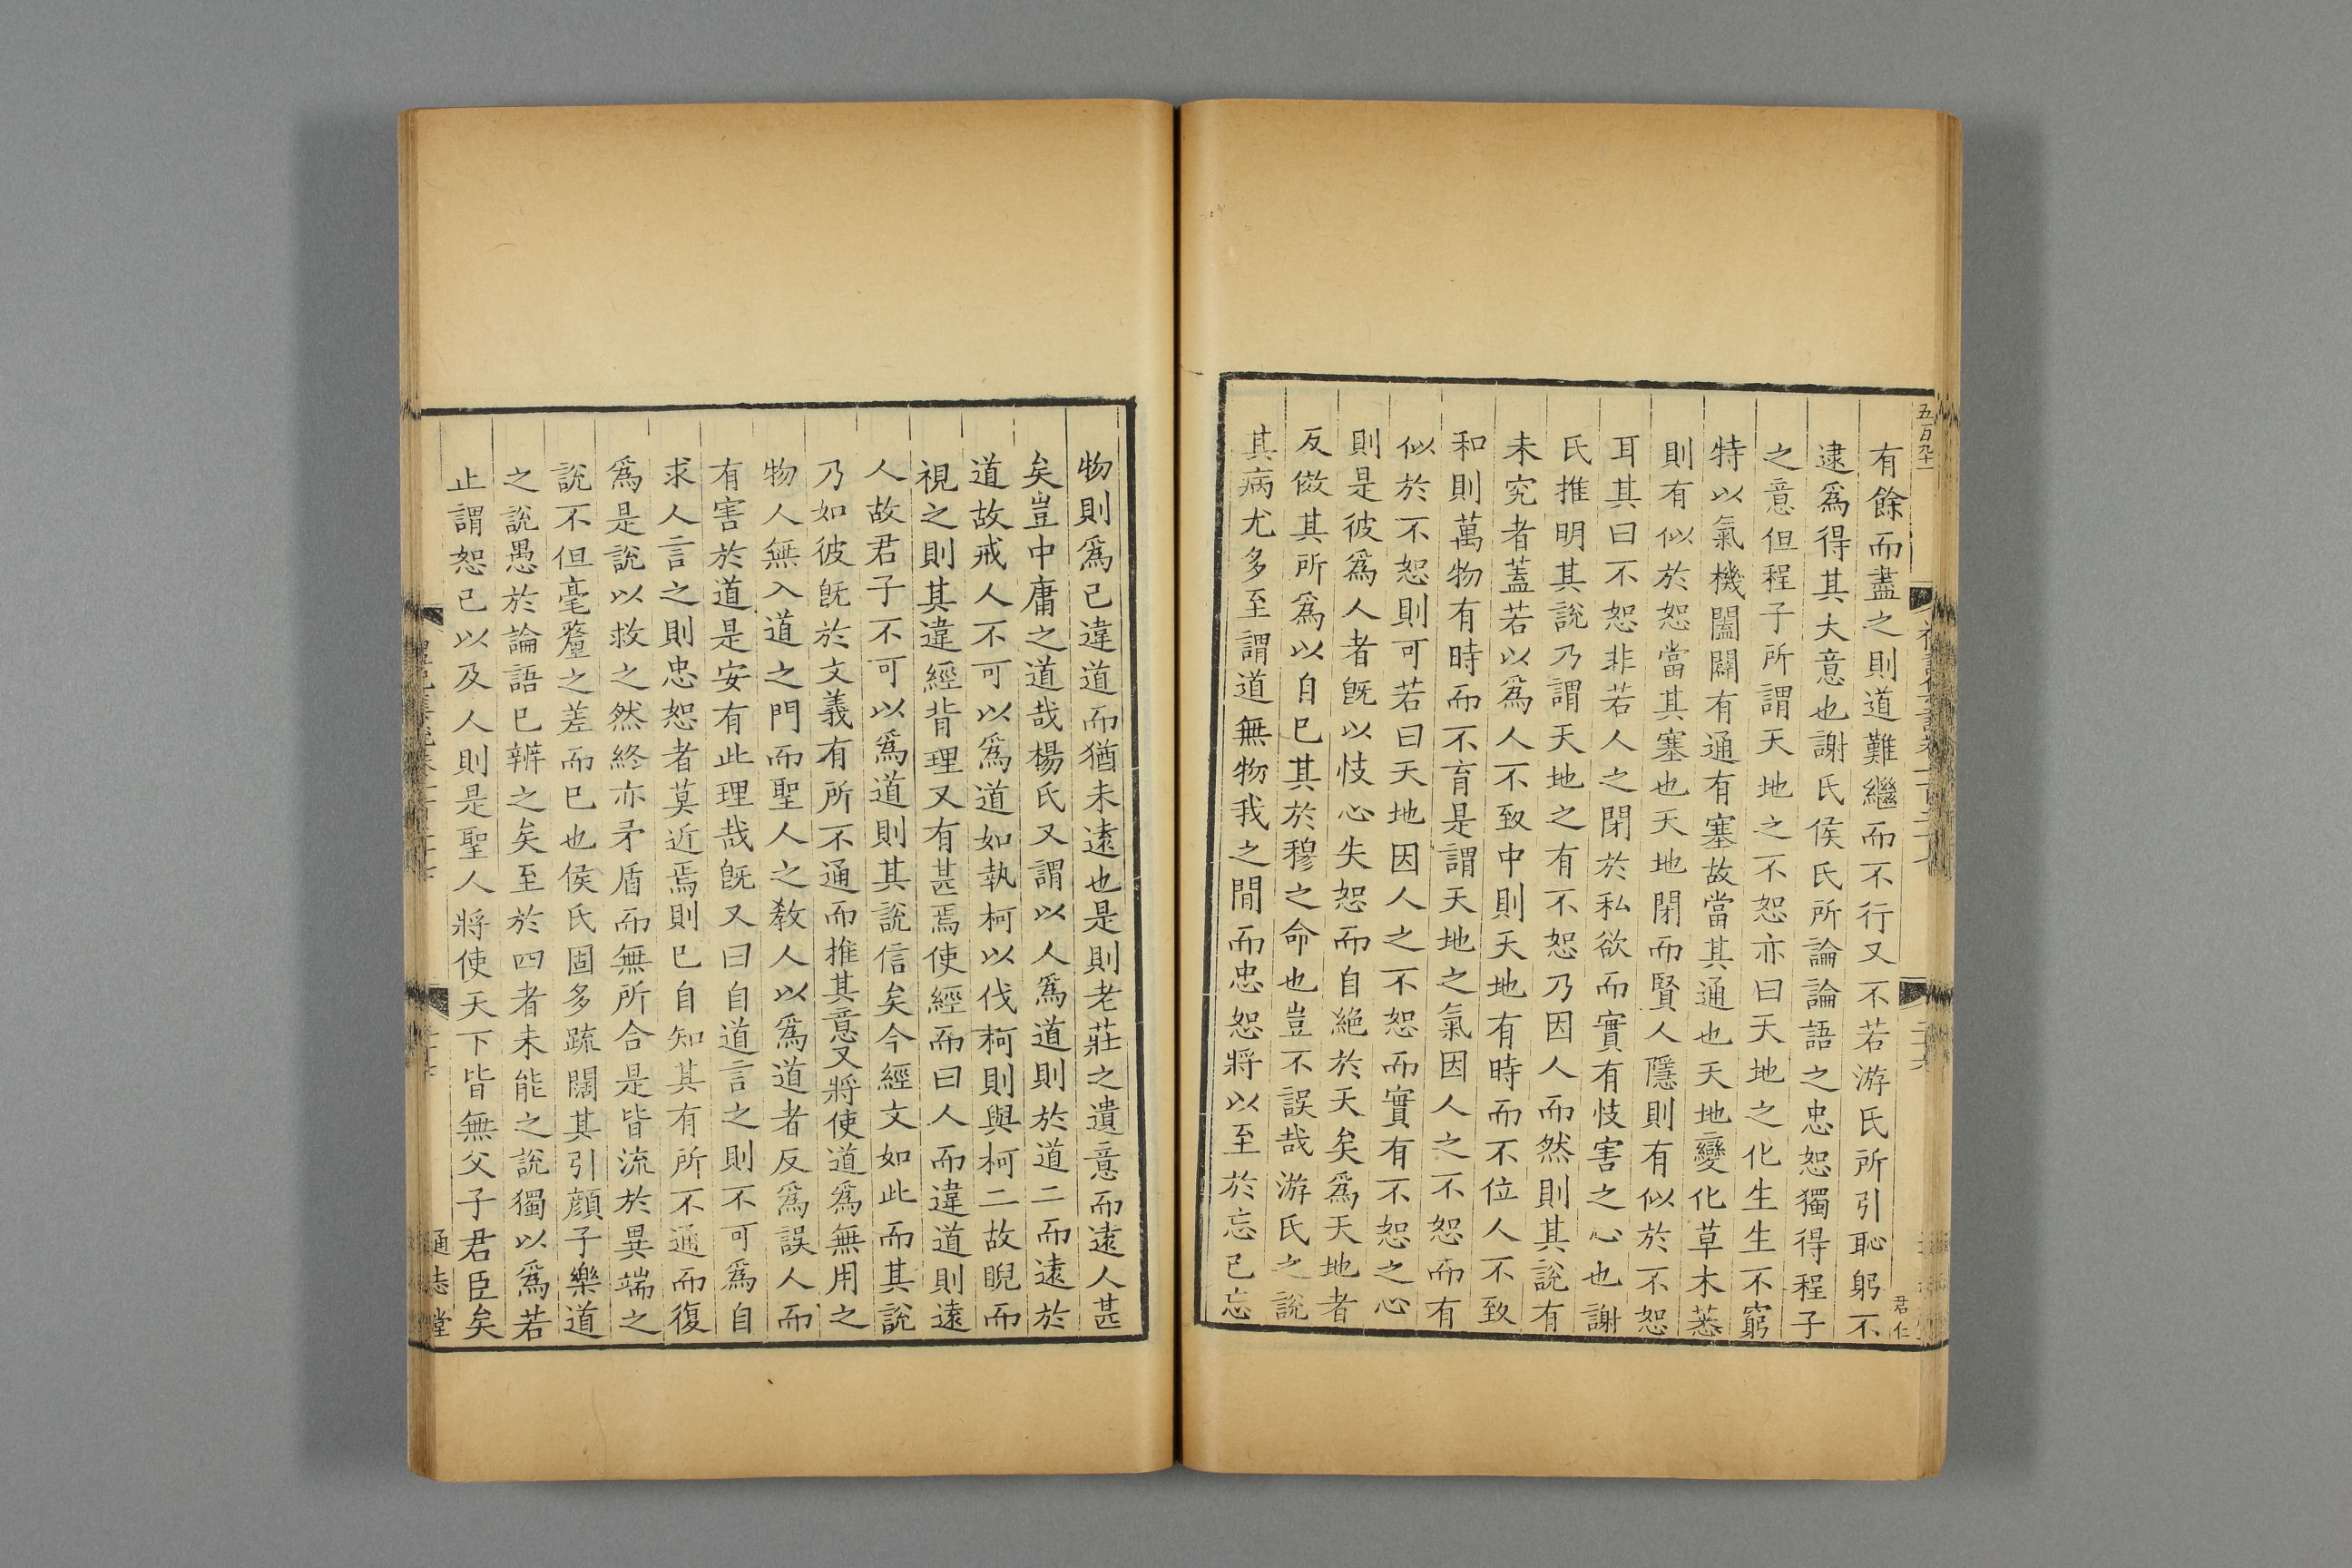 五百九十一
有餘而盡之則道難繼而不行又不若游氏所引恥躬不
逮爲得其大意也謝氏侯氏所論論語之忠恕獨得程子
之意但程子所謂天地之不恕亦曰天地之化生生不窮
特以氣機闔闢有通有塞故當其通也天地變化草木蕃
則有似於恕當其塞也天地閉而賢人隱則有似於不恕
耳其曰不恕非若人之閉於私欲而實有忮害之心也謝
氏推明其說乃謂天地之有不恕乃因人而然則其說有
未究者蓋若以爲人不致中則天地有時而不位人不致
和則萬物有時而不育是謂天地之氣因人之不恕而有
似於不恕則可若曰天地因人之不恕而實有不恕之心
則是彼爲人者旣以忮心失恕而自絕於天矣爲天地者
反傚其所爲以自已其於穆之命也豈不誤哉游氏之說
其病尤多至謂道無物我之間而忠恕將以至於忘己忘
君仁
物則爲己違道而猶未遠也是則老莊之遺意而遠人甚
矣豈中庸之道哉楊氏又謂以人爲道則於道二而遠於
道故戒人不可以爲道如執柯以伐柯則與柯二故睨而
視之則其違經背理又有甚焉使經而曰人而違道則遠
人故君子不可以爲道則其說信矣今經文如此而其說
乃如彼旣於文義有所不通而推其意又將使道爲無用之
物人無入道之門而聖人之敎人以爲道者反爲誤人而
有害於道是安有此理哉旣又曰自道言之則不可爲自
求人言之則忠恕者莫近焉則已自知其有所不通而復
爲是說以救之然終亦矛盾而無所合是皆流於異端之
說不但毫釐之差而已也侯氏固多疏闊其引顏子樂道
之說愚於論語已辨之矣至於四者未能之說獨以爲若
止謂恕己以及人則是聖人將使天下皆無父子君臣矣
通志堂